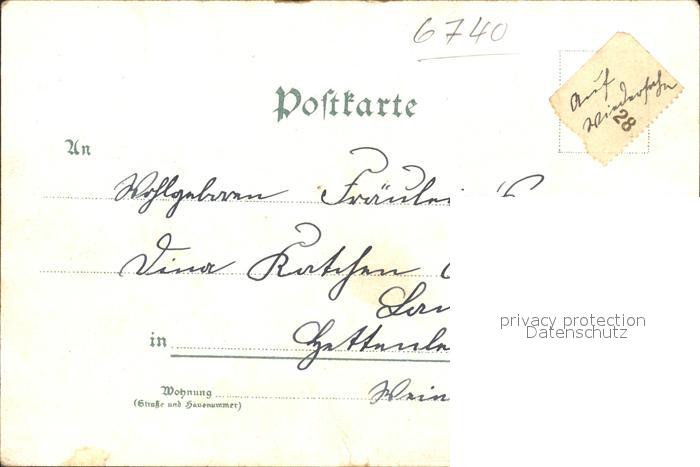 6740
Postkarte
Auf
Wiedersehn
28
An
Wohlgeboren Fräulei
Dina Katchen
in Hettenle
Wein
Wohnung
(Straße und Hausnummer)
privacy protection
Datenschutz